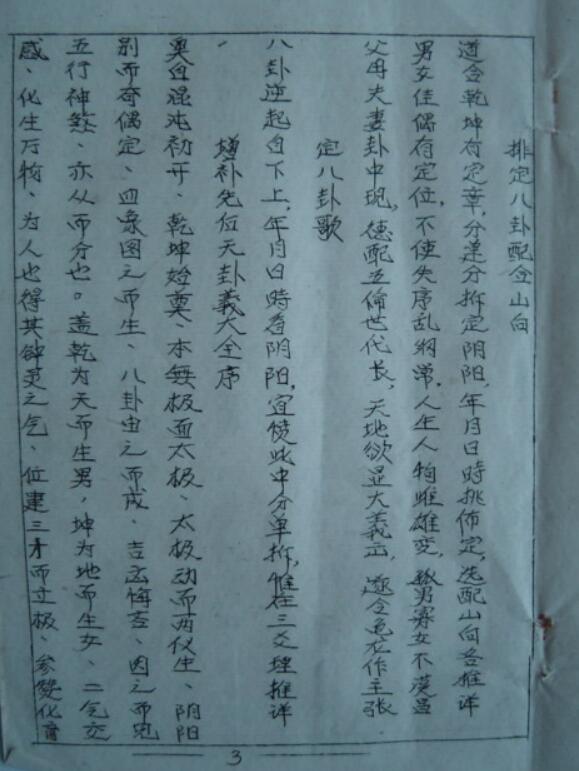 排定八卦配合山向
道合乾坤有定章，分差分拆定阴阳，年月日時挑佈定，选配山向各推详
男女佳偶有定位，不使失序乱纲常，人生人物雌雄变，孤男寡女不
父母夫妻卦中现，德配五倫世代长，天地欲显大義正，遂令危在作主张
定八卦歌
八卦逆起自下上，年月日時看阴阳，宜愤此中分单拆，惟在三爻埋推详
增补先后天卦義大全序
奥自混沌初开、乾坤始奠、本每极面太极、太极动而两仪生、阴阳
别而奇偶定、四象因之而生、八卦由之而成、吉凶悔吝、因之而兆
五行神煞、亦从而分也。盖乾为天而生男，坤为地而生女、二气交
感、化生万物、为人也得其钟灵之气、位建三才而立极、参赞化育
3